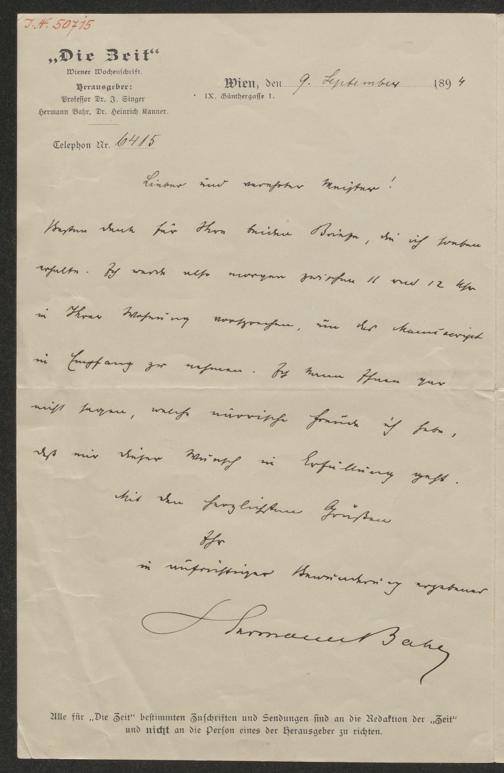 I.N. 50715
„Die Zeit“
Wiener Wochenschrift.
Herausgeber:
Professor Dr. I. Singer
Hermann Bahr, Dr. Heinrich Kanner.
Telephon Nr. 6415
Wien, den 9. September 1894
IX. Günthergasse 1.
Lieber und verehrter Meister!
Besten Dank für Ihre beiden Briefe, die ich soeben
erhalte. Ich werde also morgen zwischen 11 und 12 Uhr
in Ihrer Wohnung vorsprechen, um das Manuscript
in Empfang zu nehmen. Ich kann Ihnen gar
nicht sagen, welche närrische Freude ich habe,
daß mir dieser Wunsch in Erfüllung geht.
Mit den herzlichsten Grüßen
Ihr
in aufrichtiger Bewunderung ergebener
Hermann Bahr
Alle für „Die Zeit“ bestimmten Zuschriften und Sendungen sind an die Redaktion der „Zeit“
und nicht an die Person eines der Herausgeber zu richten.